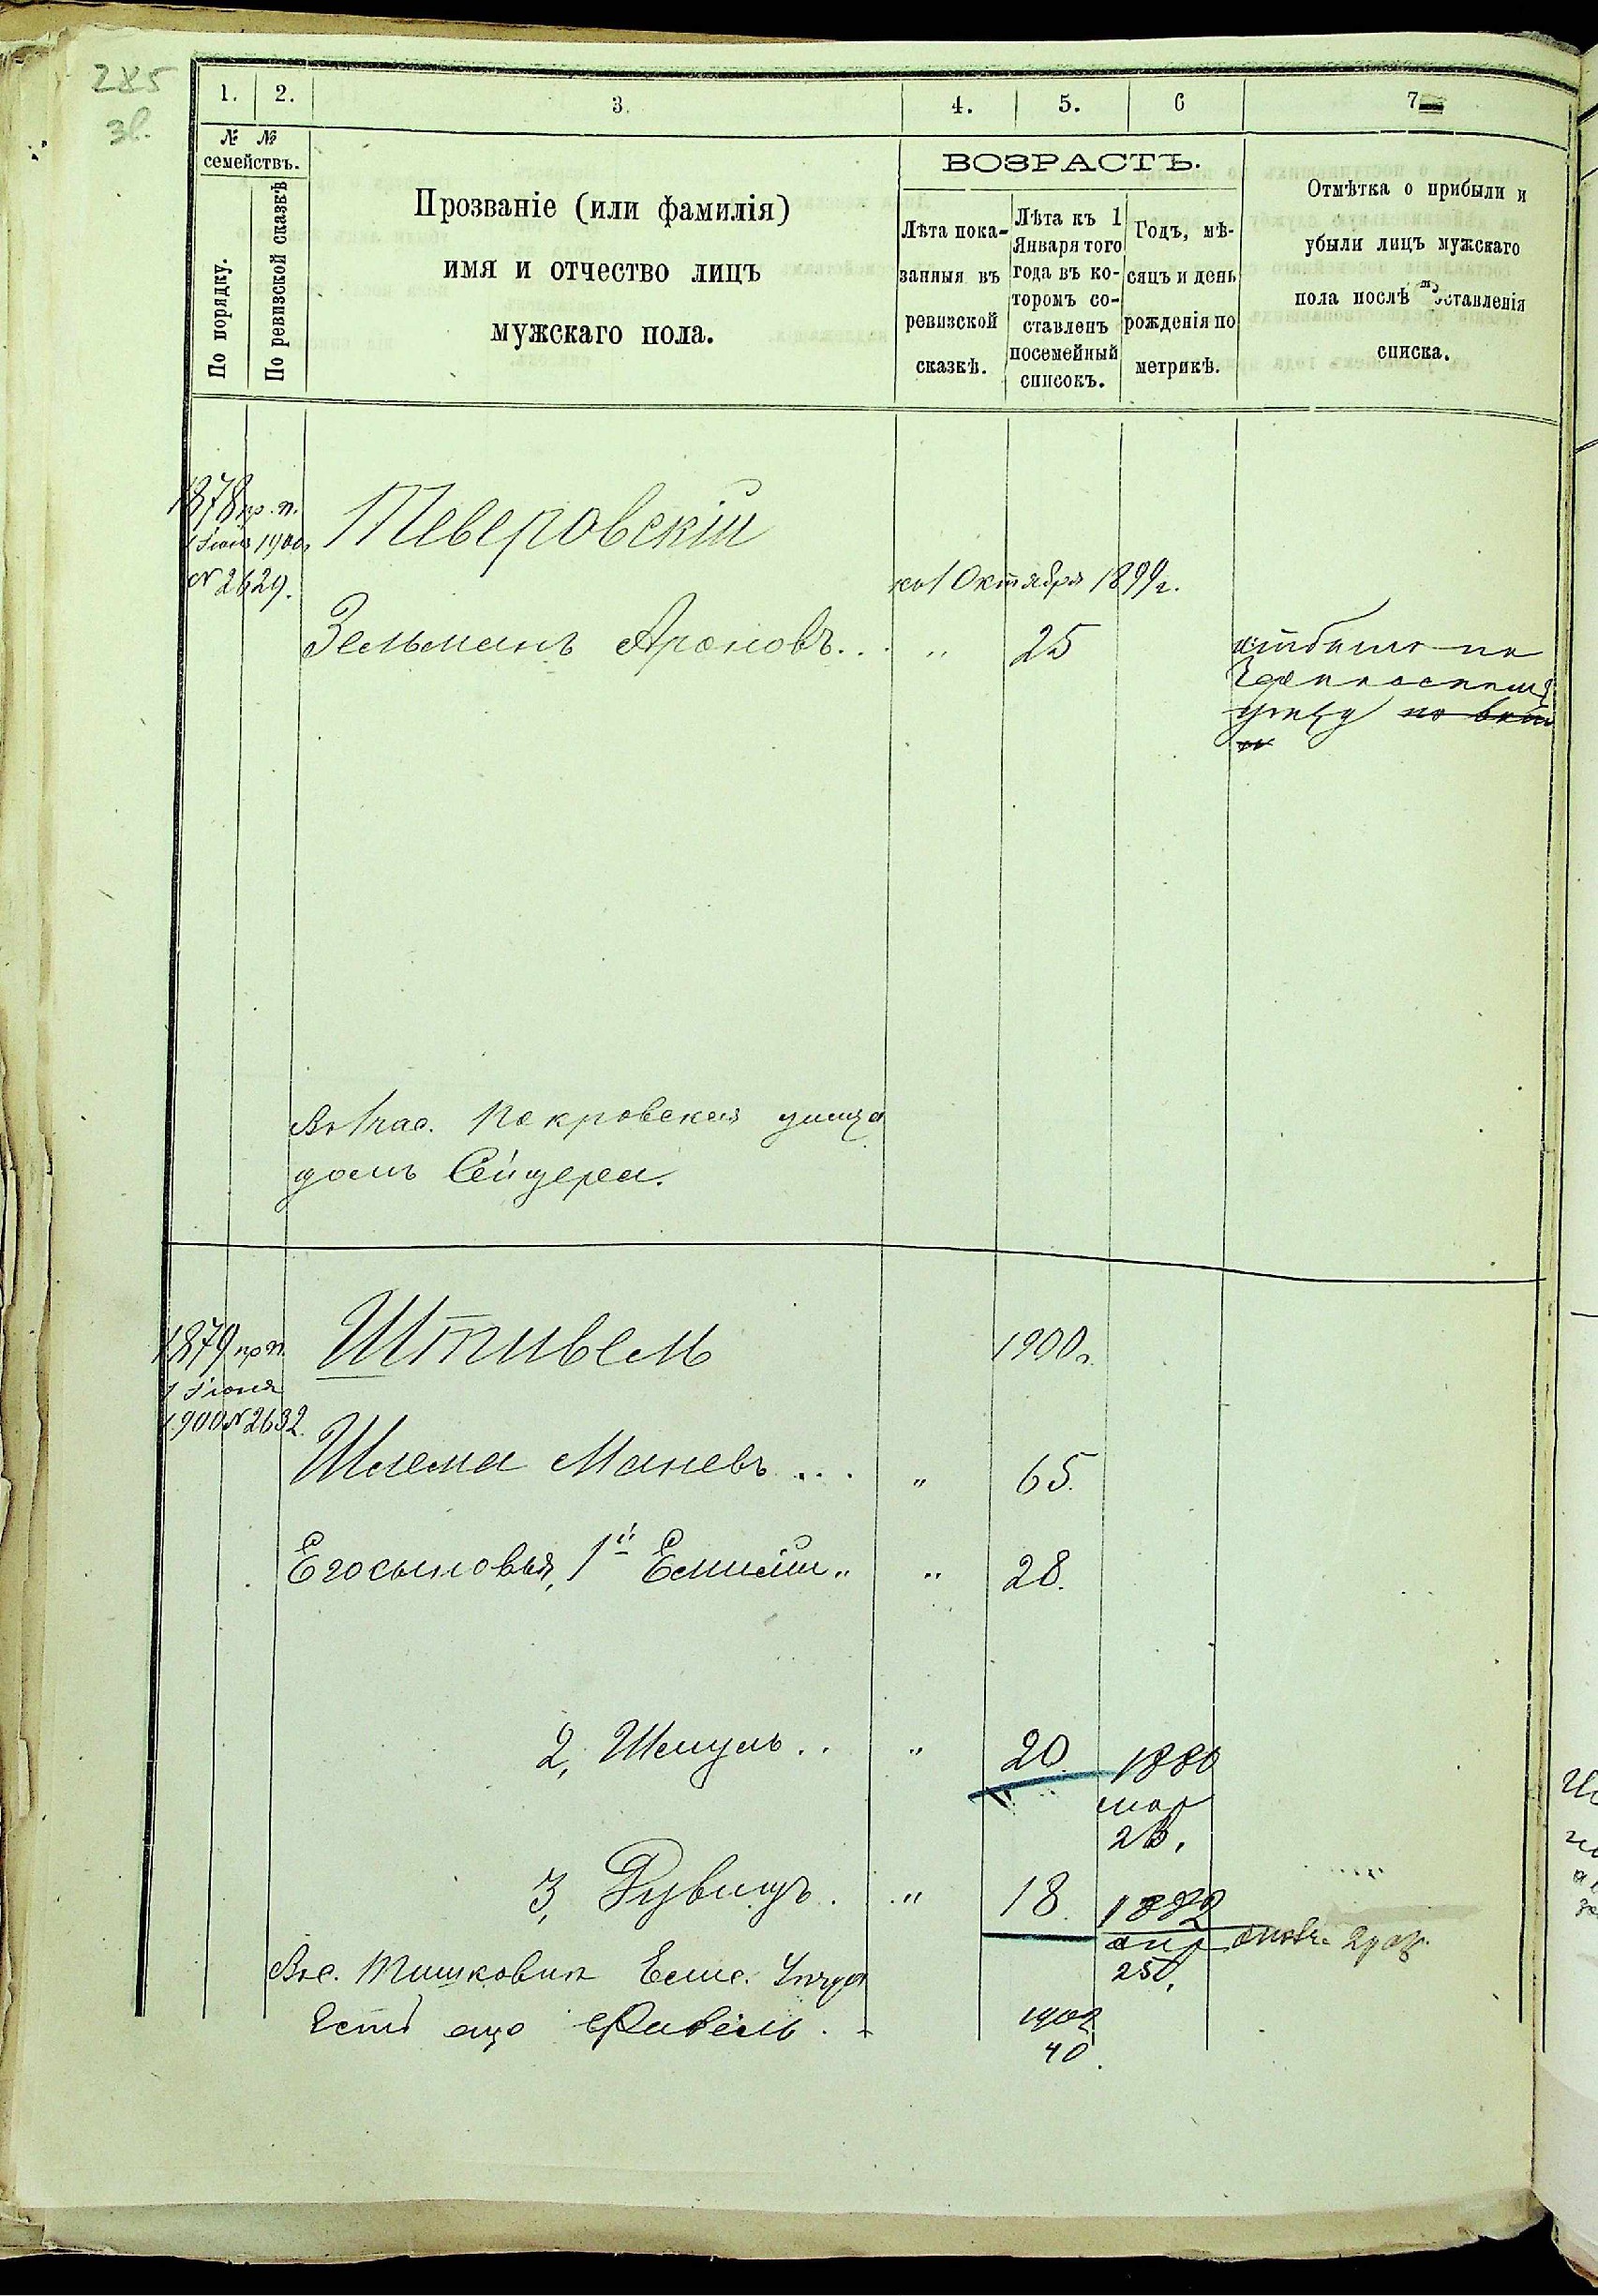 285
зв.
1. 2. 3. 4. 5. 6 7
№ № семействъ.
По порядку.
По ревизской сказкѣ
Прозваніе (или фамилія)
имя и отчество лицъ
мужскаго пола.
ВОЗРАСТЪ.
Лѣта показанныя въ ревизской сказкѣ.
Лѣта къ 1 Января того года въ которомъ составленъ посемейный списокъ.
Годъ, мѣсяцъ и день рожденія по метрикѣ.
Отмѣтка о прибыли и
убыли лицъ мужскаго
пола послѣ составленія
списка.
1878 пр. п. Теверовскій
1 Іюня 1900
№ 2629. ко 1 Октября 1899 г.
Зельманъ Ароновъ... " 25
отбыто по
Покровская улица
домъ
1879 пр п. Штивель 1900 г.
1 Іюня
1900 № 2632.
Шлема Маневъ ... " 65.
Его сыновья, 1й " " 28.
2, Шмуль .. " 20. 1880
мар
26.
3, Рувинъ. " 18. 1882
апр
25.
Тишкович
Есть еще 1902
40.